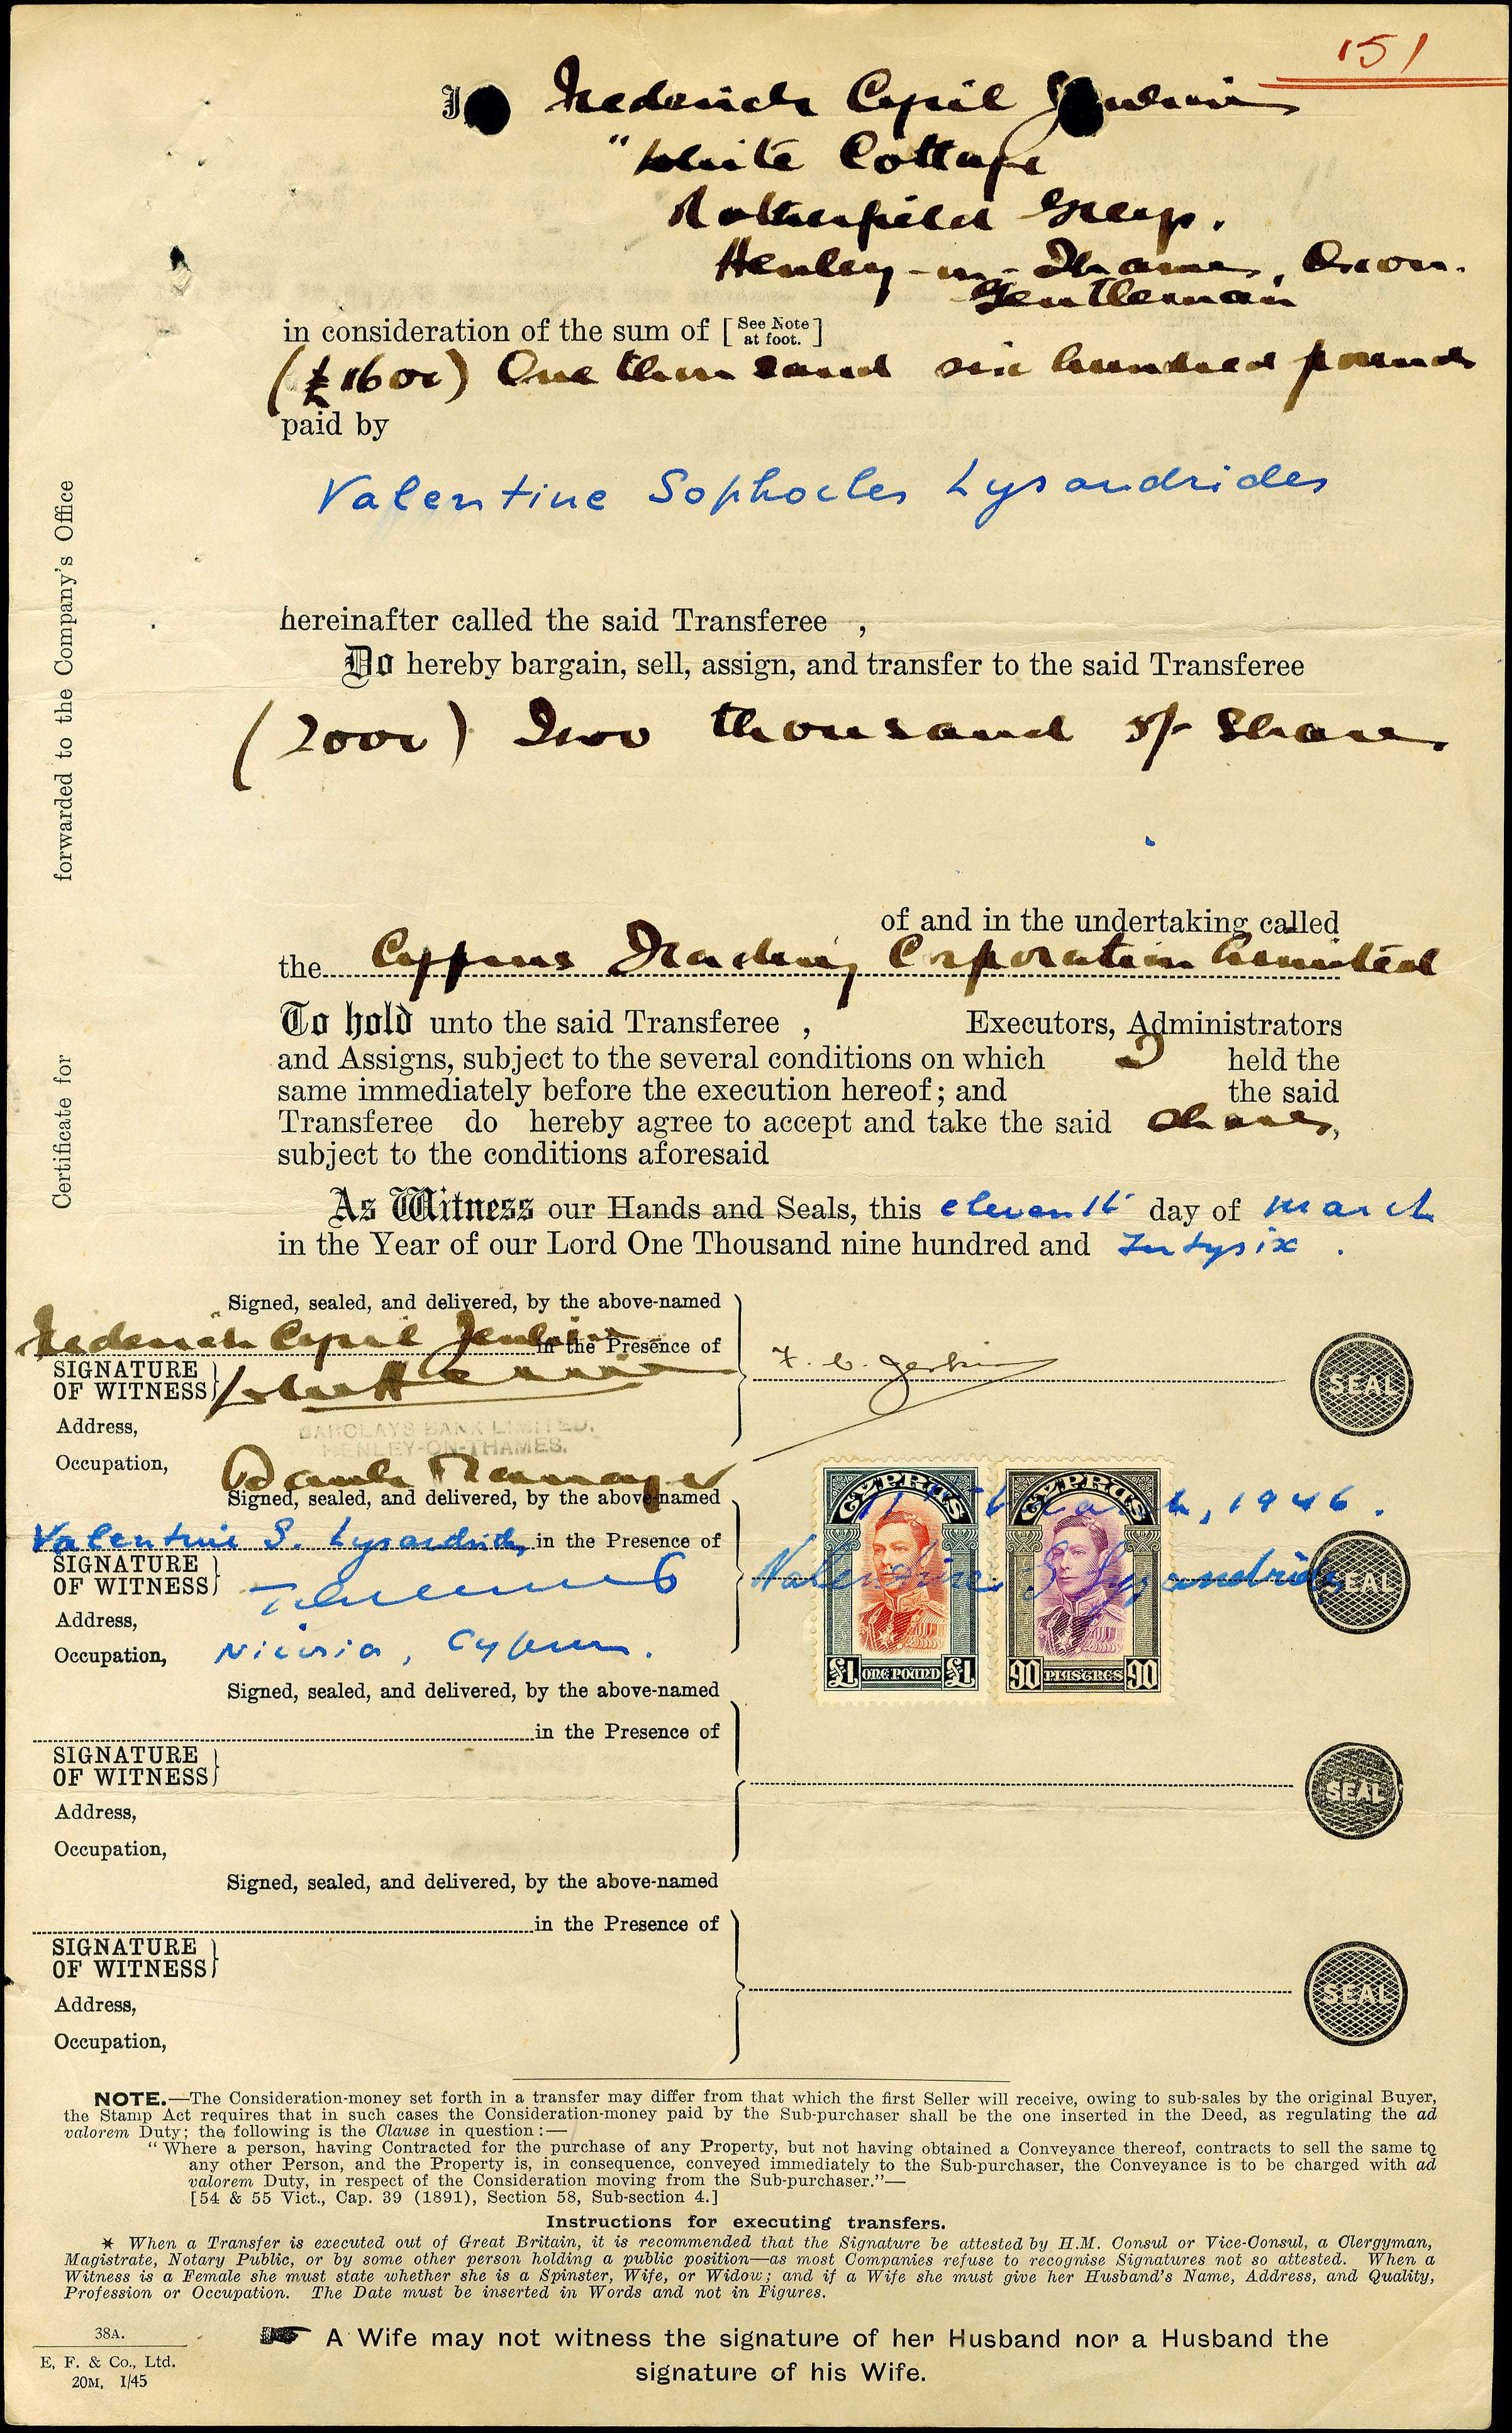 151
I Frederick Cyril Jenkins
"White Cottage
Rotherfield Greys.
Henley-on-Thames, Oxon.
Gentleman
in consideration of the sum of [See Note at foot.]
(£1600) One thousand six hundred pounds
paid by
Valentine Sophocles Lysandrides
hereinafter called the said Transferee ,
Do hereby bargain, sell, assign, and transfer to the said Transferee
(2000) Two thousand 5/- Shares
of and in the undertaking called
the Cyprus Trading Corporation Limited
To hold unto the said Transferee , Executors, Administrators
and Assigns, subject to the several conditions on which I held the
same immediately before the execution hereof; and the said
Transferee do hereby agree to accept and take the said shares,
subject to the conditions aforesaid
As Witness our Hands and Seals, this eleventh day of March
in the Year of our Lord One Thousand nine hundred and fortysix .
Certificate for forwarded to the Company's Office
Signed, sealed, and delivered, by the above-named
Frederick Cyril Jenkins in the Presence of
SIGNATURE OF WITNESS
F. C. Jenkins
SEAL
Address,
BARCLAYS BANK LIMITED.
HENLEY-ON-THAMES.
Occupation, Bank Manager
Signed, sealed, and delivered, by the above-named
Valentine S. Lysandrides in the Presence of
SIGNATURE OF WITNESS
Address,
Occupation, Nicosia, Cyprus.
11th March, 1946.
Valentine S Lysandrides
SEAL
CYPRUS
£1 ONE POUND £1
CYPRUS
90 PIASTRES 90
Signed, sealed, and delivered, by the above-named
in the Presence of
SIGNATURE OF WITNESS
Address,
Occupation,
SEAL
Signed, sealed, and delivered, by the above-named
in the Presence of
SIGNATURE OF WITNESS
Address,
Occupation,
SEAL
NOTE.—The Consideration-money set forth in a transfer may differ from that which the first Seller will receive, owing to sub-sales by the original Buyer,
the Stamp Act requires that in such cases the Consideration-money paid by the Sub-purchaser shall be the one inserted in the Deed, as regulating the ad
valorem Duty; the following is the Clause in question:—
"Where a person, having Contracted for the purchase of any Property, but not having obtained a Conveyance thereof, contracts to sell the same to
any other Person, and the Property is, in consequence, conveyed immediately to the Sub-purchaser, the Conveyance is to be charged with ad
valorem Duty, in respect of the Consideration moving from the Sub-purchaser."—
[54 & 55 Vict., Cap. 39 (1891), Section 58, Sub-section 4.]
Instructions for executing transfers.
* When a Transfer is executed out of Great Britain, it is recommended that the Signature be attested by H.M. Consul or Vice-Consul, a Clergyman,
Magistrate, Notary Public, or by some other person holding a public position—as most Companies refuse to recognise Signatures not so attested. When a
Witness is a Female she must state whether she is a Spinster, Wife, or Widow; and if a Wife she must give her Husband's Name, Address, and Quality,
Profession or Occupation. The Date must be inserted in Words and not in Figures.
A Wife may not witness the signature of her Husband nor a Husband the
signature of his Wife.
38A.
E, F. & Co., Ltd.
20M, 1/45